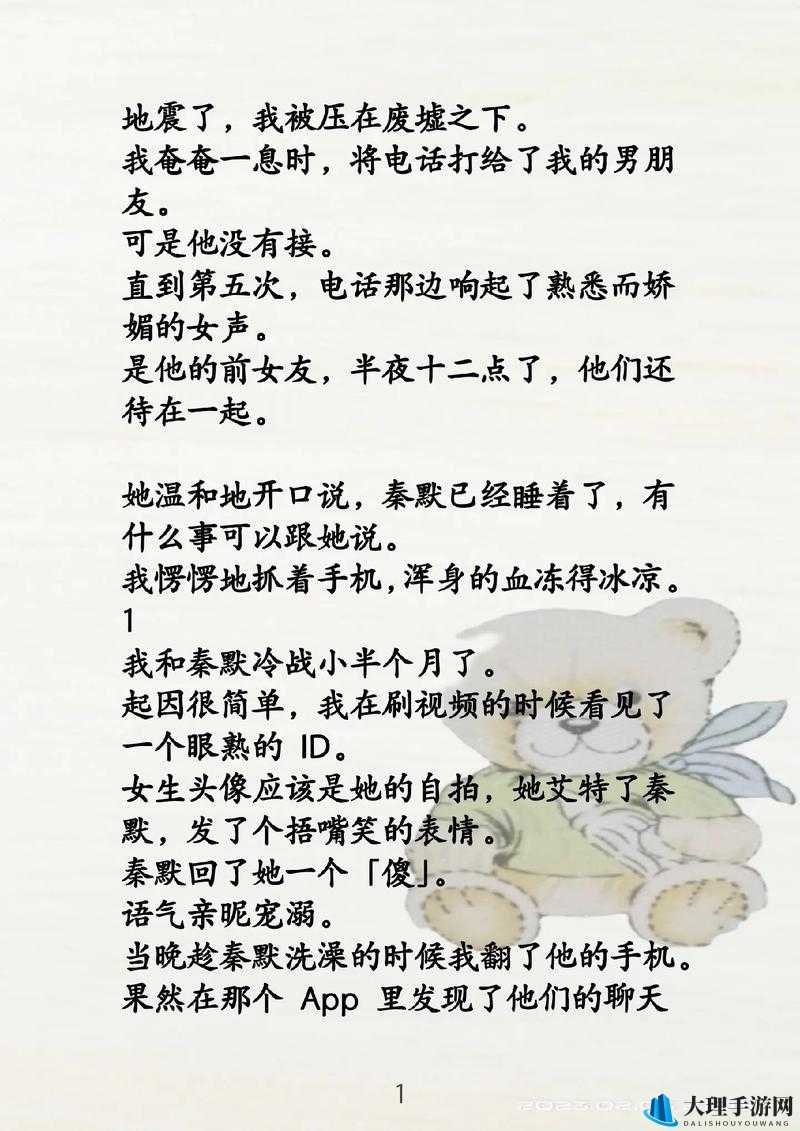 地震了，我被压在废墟之下。
我奄奄一息时，将电话打给了我的男朋
友。
可是他没有接。
直到第五次，电话那边响起了熟悉而娇
媚的女声。
是他的前女友，半夜十二点了，他们还
待在一起。
她温和地开口说，秦默已经睡着了，有
什么事可以跟她说。
我愣愣地抓着手机，浑身的血冻得冰凉。
1
我和秦默冷战小半个月了。
起因很简单，我在刷视频的时候看见了
一个眼熟的 ID。
女生头像应该是她的自拍，她艾特了秦
默，发了个捂嘴笑的表情。
秦默回了她一个「傻」。
语气亲昵宠溺。
当晚趁秦默洗澡的时候我翻了他的手机。
果然在那个 App 里发现了他们的聊天
1
大理手游网
DALISHOUYOUWANG